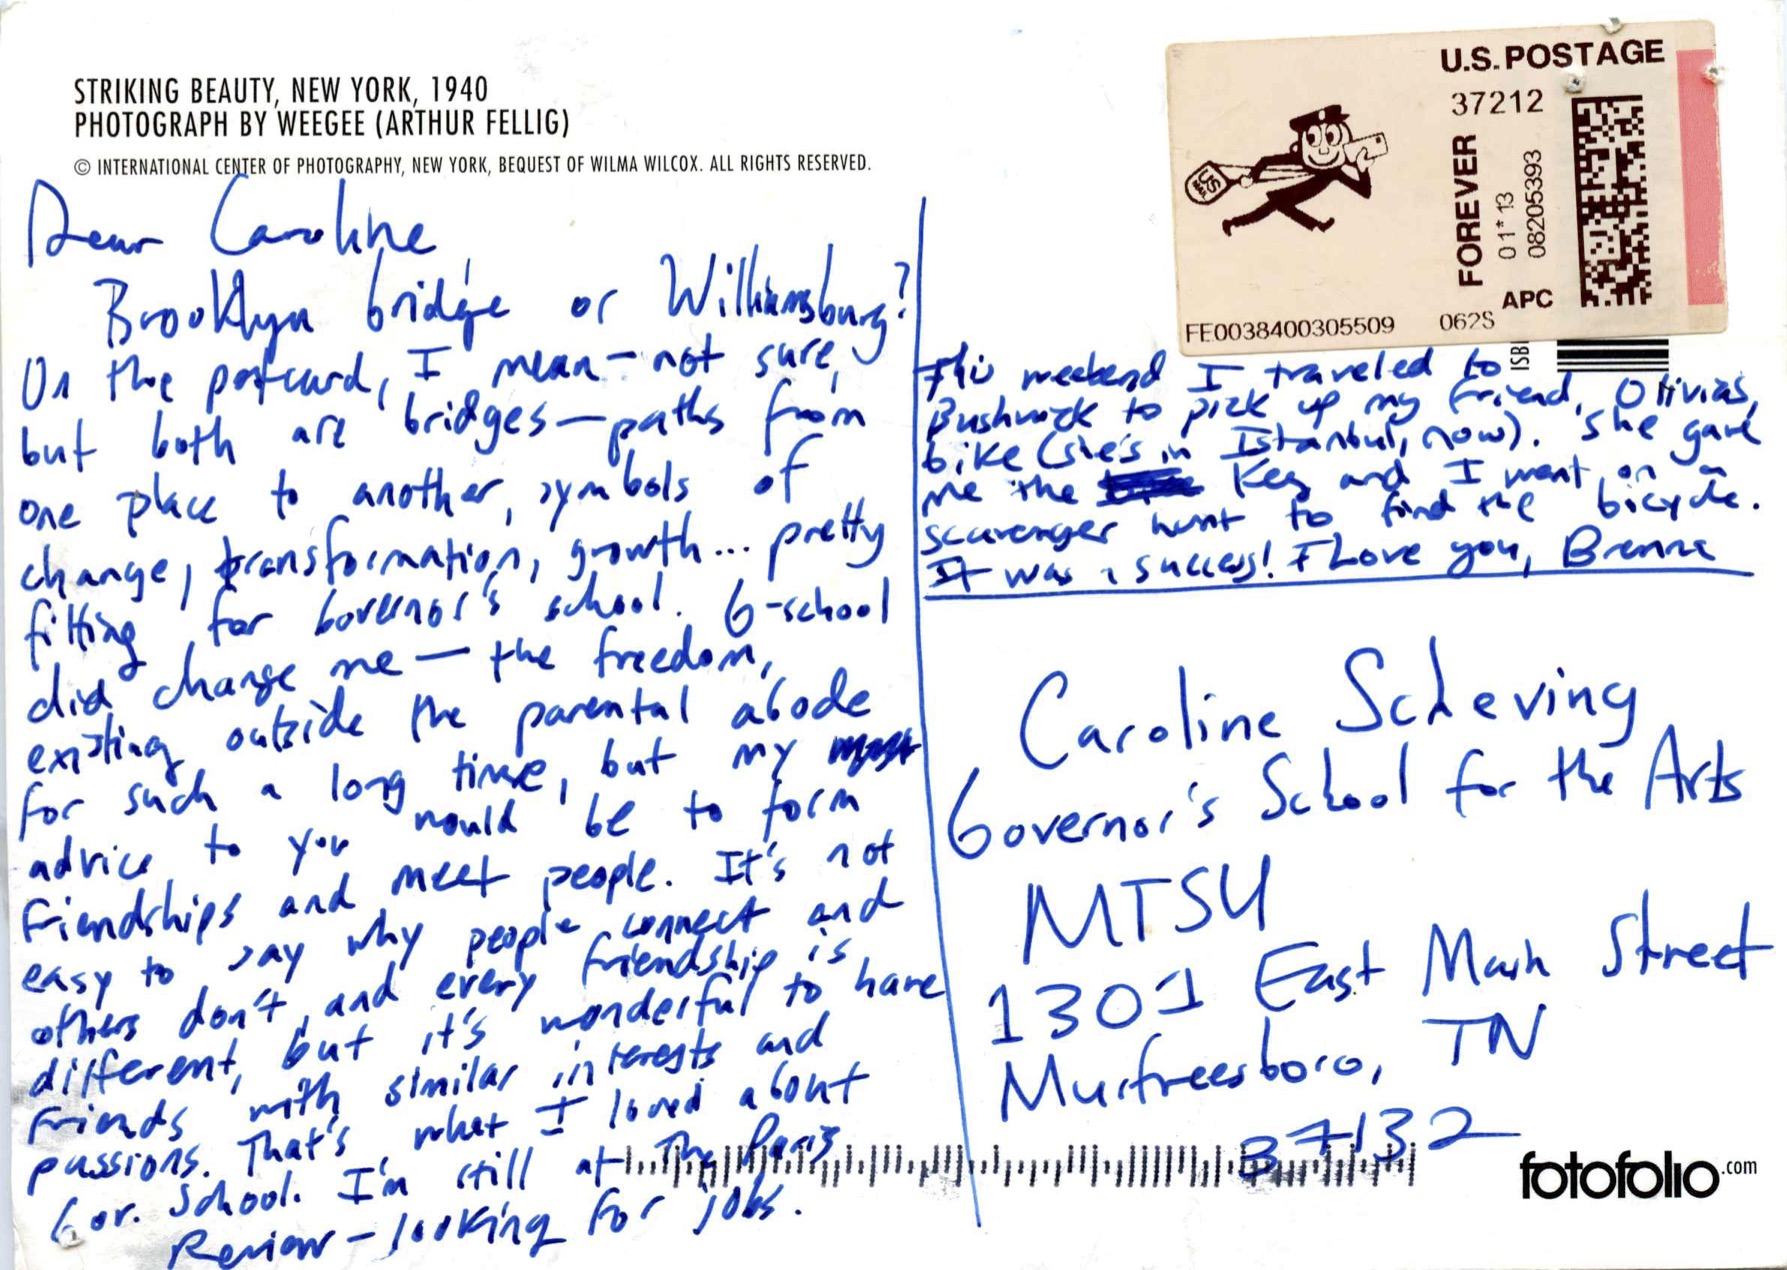 STRIKING BEAUTY, NEW YORK, 1940
PHOTOGRAPH BY WEEGEE (ARTHUR FELLIG)
© INTERNATIONAL CENTER OF PHOTOGRAPHY, NEW YORK, BEQUEST OF WILMA WILCOX. ALL RIGHTS RESERVED.
Dear Caroline
Brooklyn bridge or Williamsburg?
On the postcard, I mean — not sure,
but both are bridges — paths from
one place to another, symbols of
change, transformation, growth... pretty
fitting for Governor's school. G-school
did change me — the freedom,
existing outside the parental abode
for such a long time, but my
advice to you would be to form
friendships and meet people. It's not
easy to say why people connect and
others don't, and every friendship is
different, but it's wonderful to have
friends with similar interests and
passions. That's what I loved about
Gov. School. I'm still at The Paris
Review – looking for jobs.
U.S. POSTAGE
37212
FOREVER
01*13
08205393
APC
US MAIL
FE0038400305509
062S
ISB
This weekend I traveled to
Bushwick to pick up my friend, Olivia's,
bike (she's in Istanbul, now). She gave
me the key and I went on a
scavenger hunt to find the bicycle.
It was a success! I Love you, Brenna
Caroline Scheving
Governor's School for the Arts
MTSU
1301 East Main Street
Murfreesboro, TN
37132
fotofolio.com